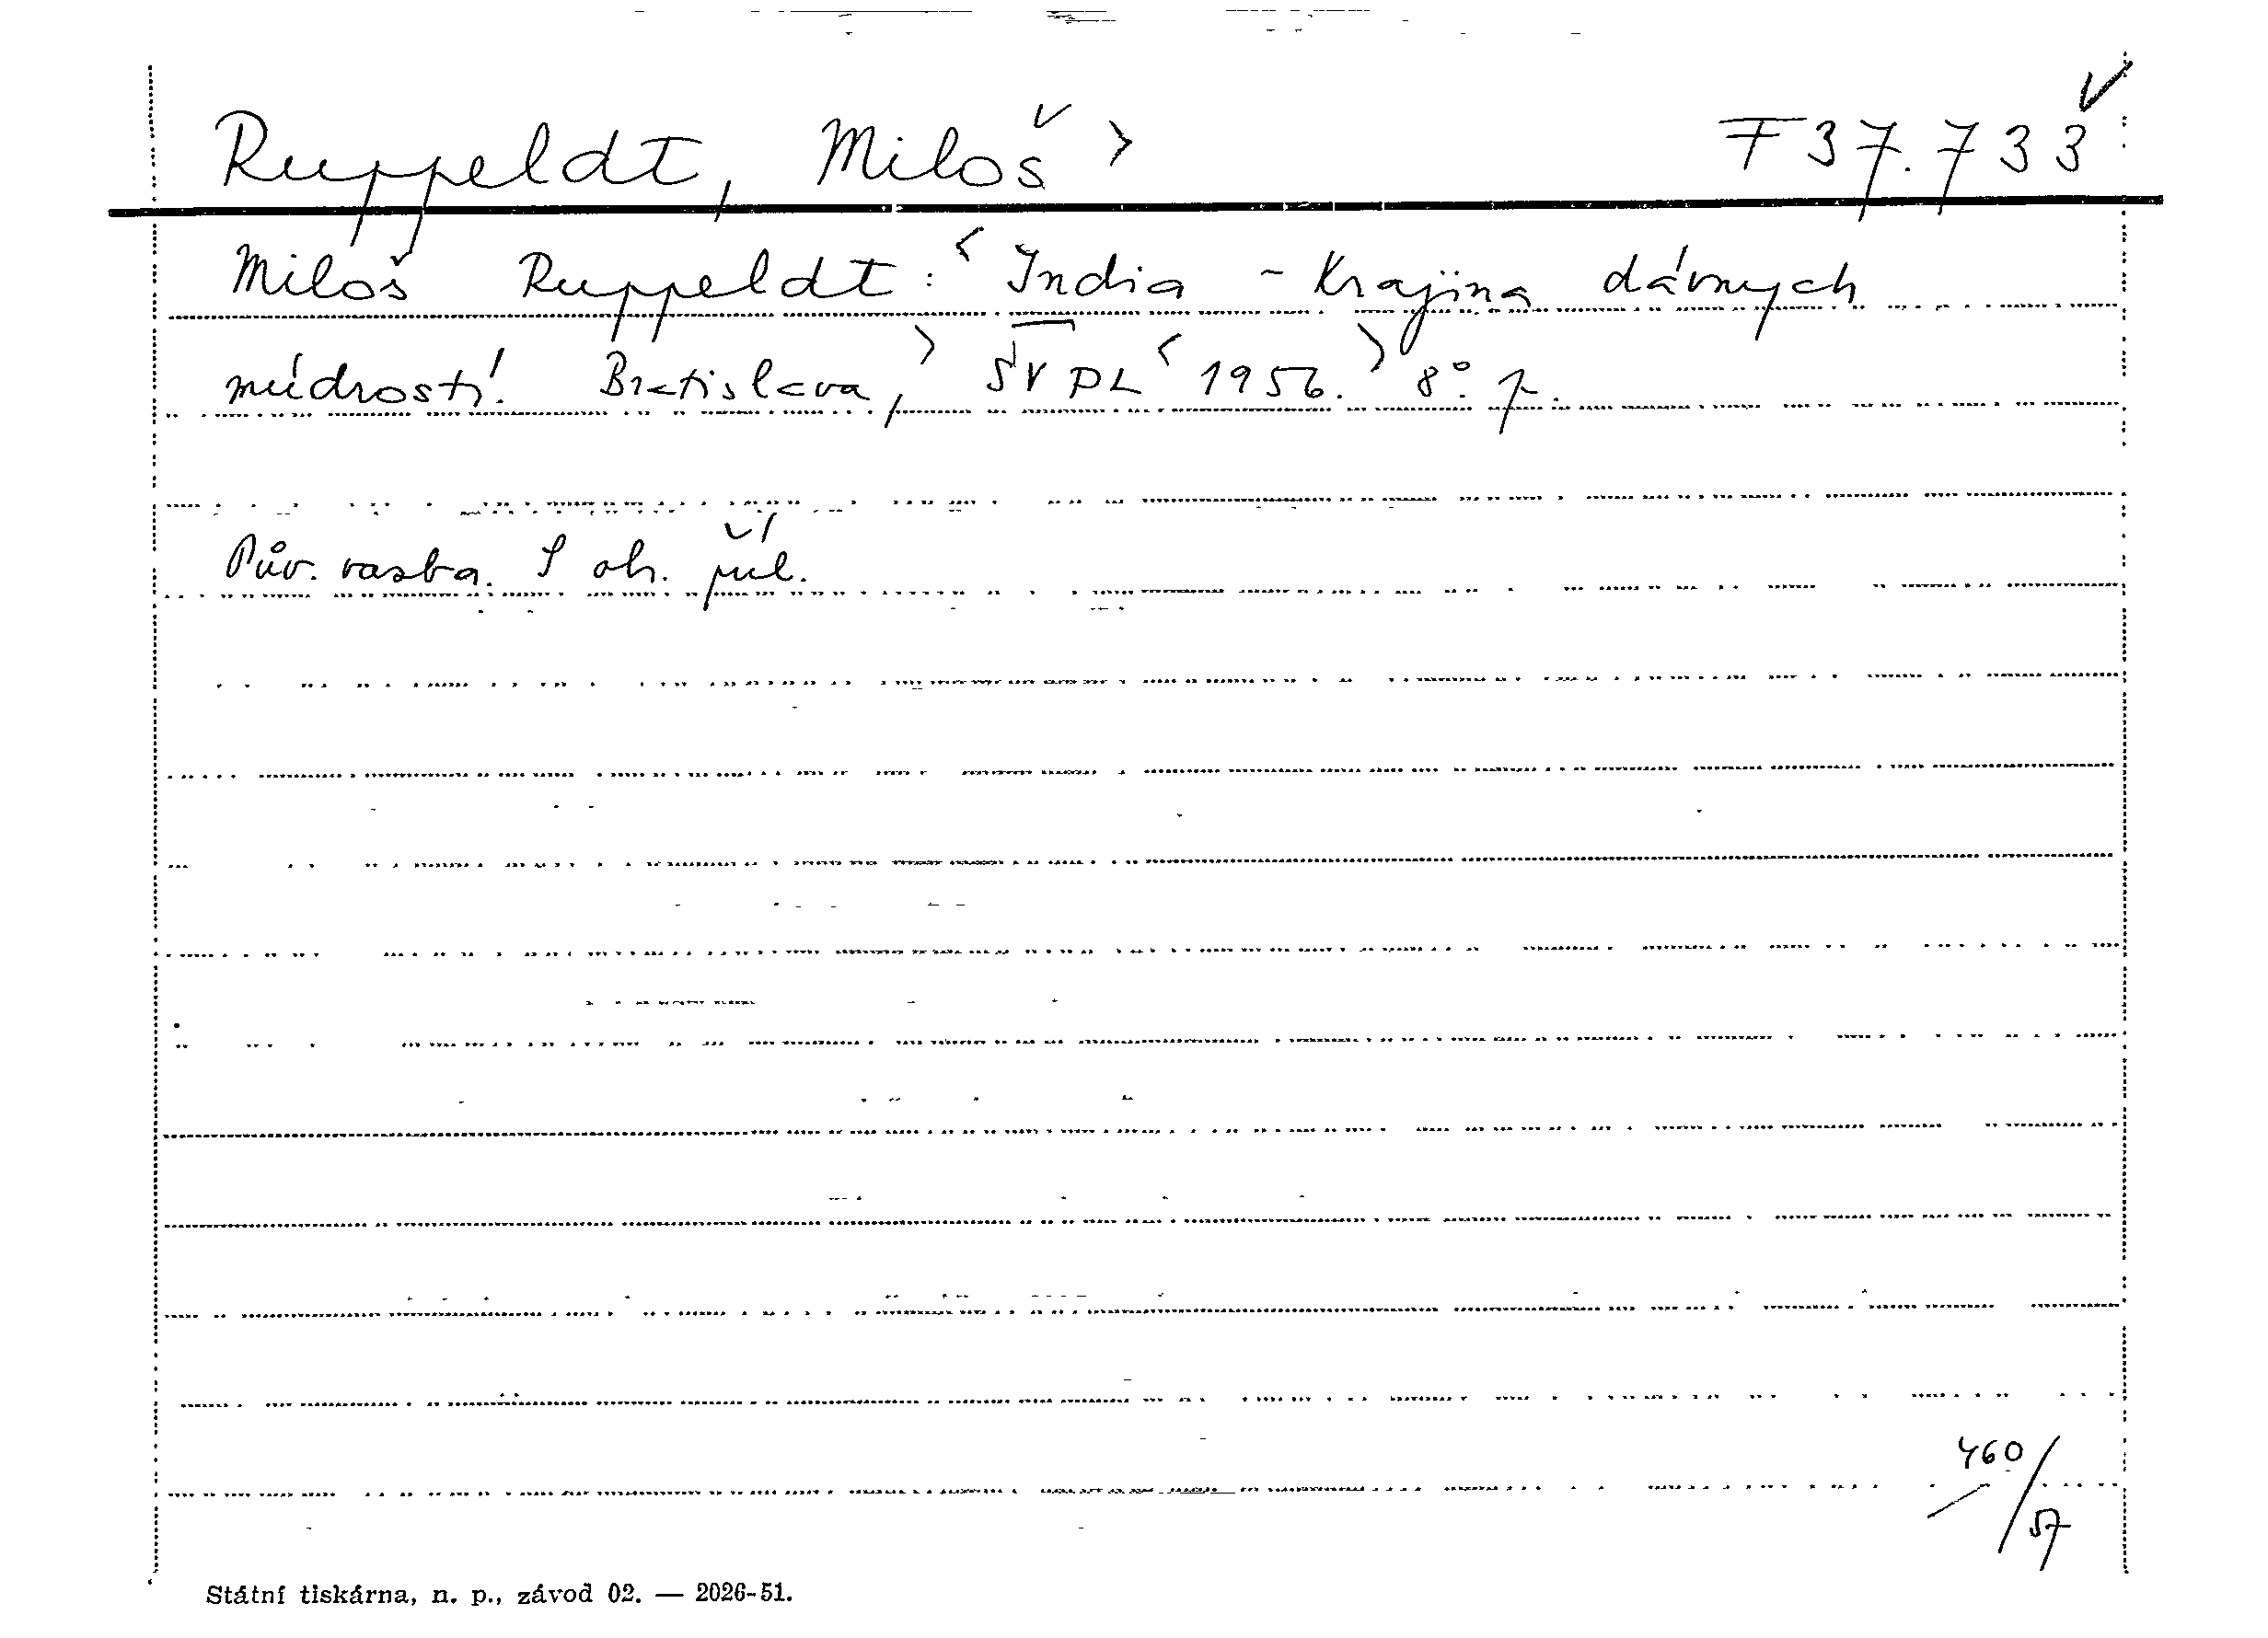 Ruppeldt, Miloš > F 37.733
Miloš Ruppeldt: < India - Krajina dávnych
múdrostí. Bratislava, > ŠVPL < 1956. > 8°. p.
Pův. vazba. S ob. příl.
460/57
Státní tiskárna, n. p., závod 02. — 2026-51.